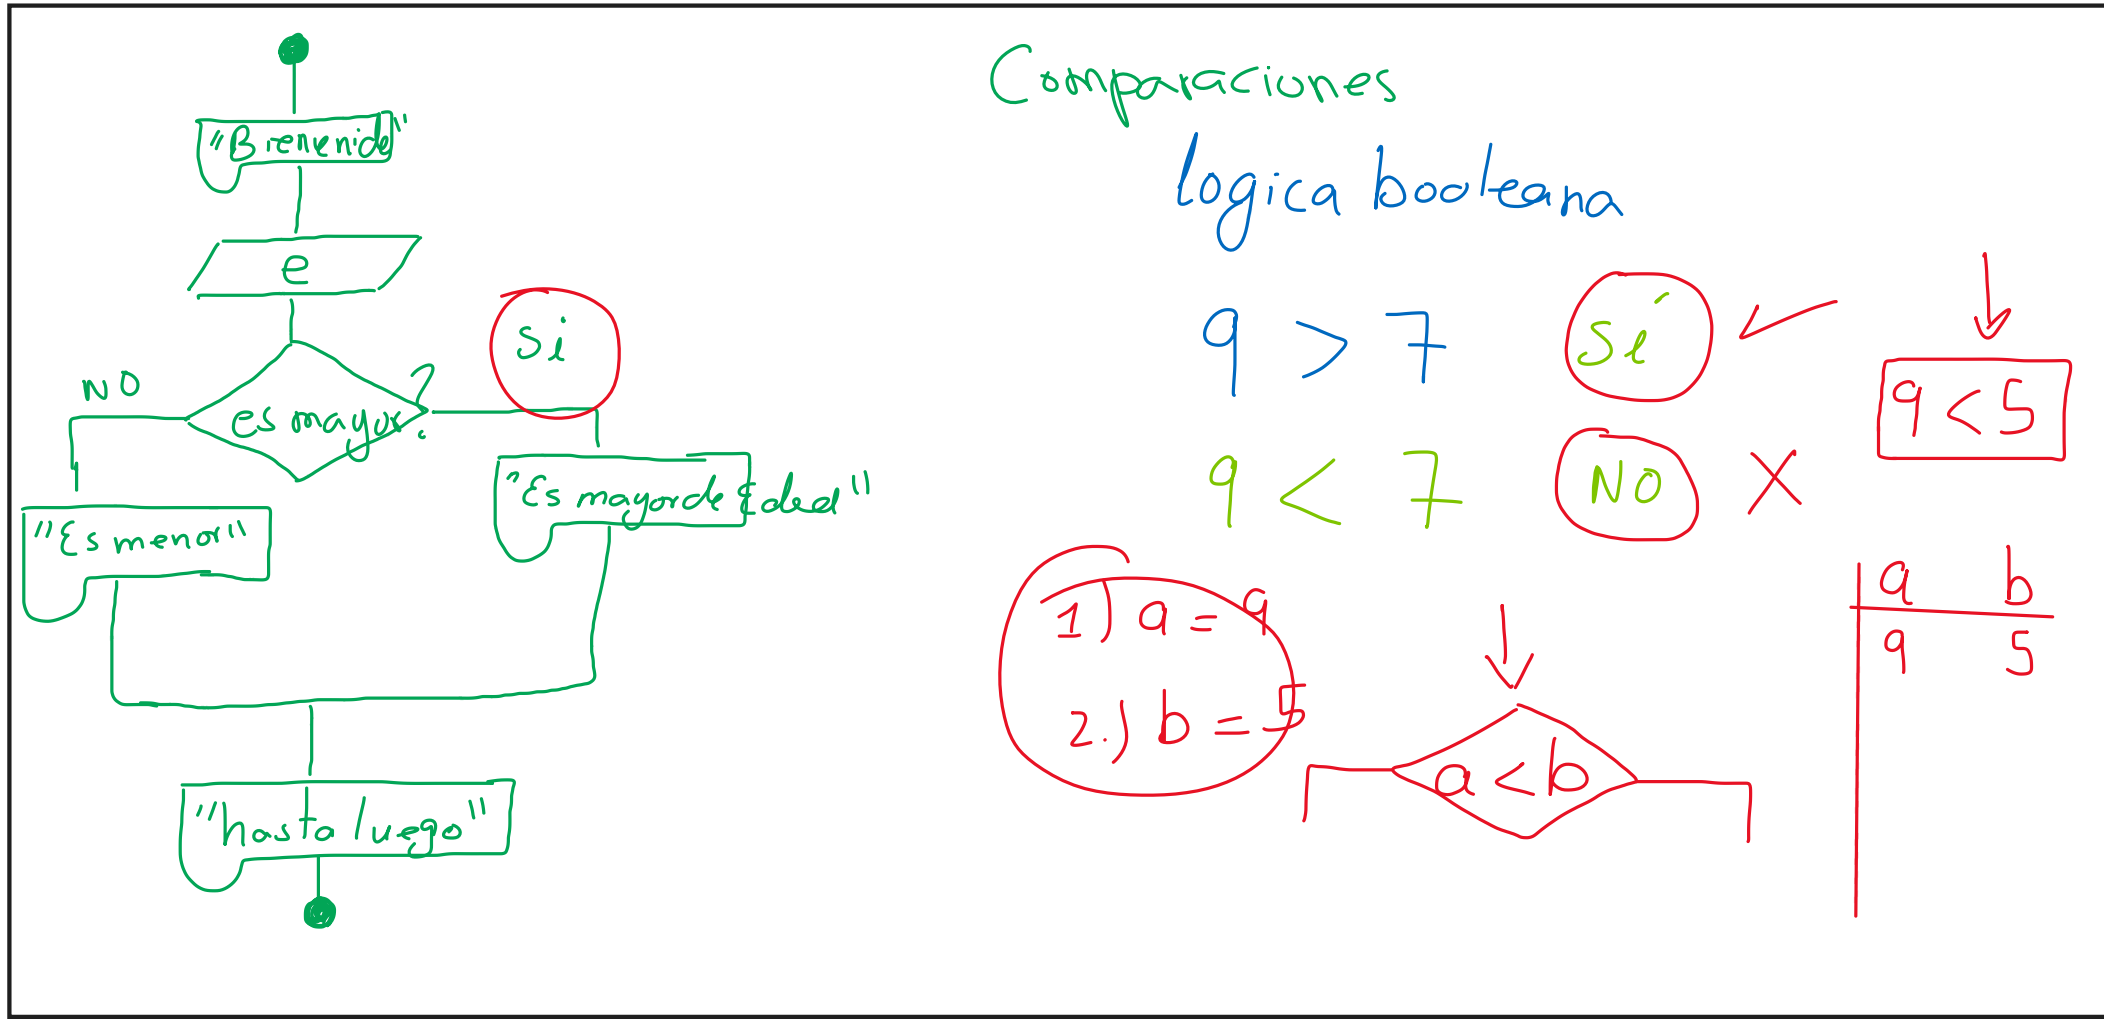 "Bienenido"
e
es mayor?
NO
Si
"Es menor"
"Es mayor de Edad"
"hasta luego"
Comparaciones
logica booleana
9 > 7 Sí
9 < 7 NO
9 < 5
1) a = 9
2.) b = 5
a < b
a b
9 5